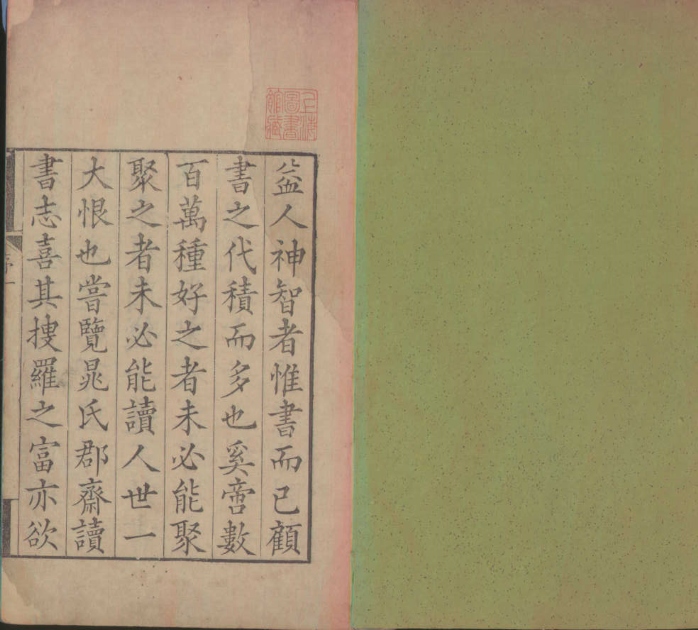 益人神智者惟書而已顧
書之代積而多也奚啻數
百萬種好之者未必能聚
聚之者未必能讀人世一
大恨也嘗覽晁氏郡齋讀
書志喜其捜羅之富亦欲
上海圖書館藏